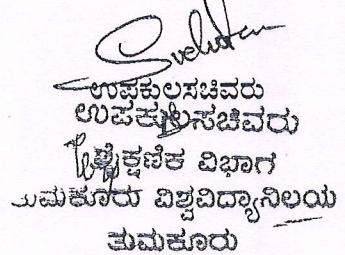 ಉಪಕುಲಸಚಿವರು
ಉಪಕುಲಸಚಿವರು
ಶೈಕ್ಷಣಿಕ ವಿಭಾಗ
ತುಮಕೂರು ವಿಶ್ವವಿದ್ಯಾನಿಲಯ
ತುಮಕೂರು